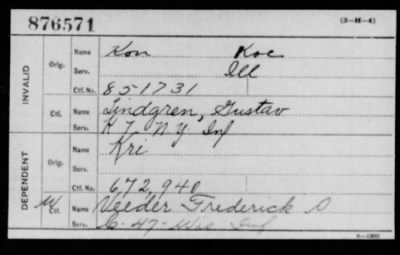 876571 (3-H-4)
INVALID
Orig. Name Kon Koc
Serv. Ill
Ctf. No. 851731
Ctf. Name Lindgren, Gustav
Serv. K 7, N.Y. Inf
DEPENDENT
Orig. Name Kri
Serv.
Ctf. No. 672,940
W Ctf. Name Veeder Frederick
Serv. C-47-Wis Inf
6-1902